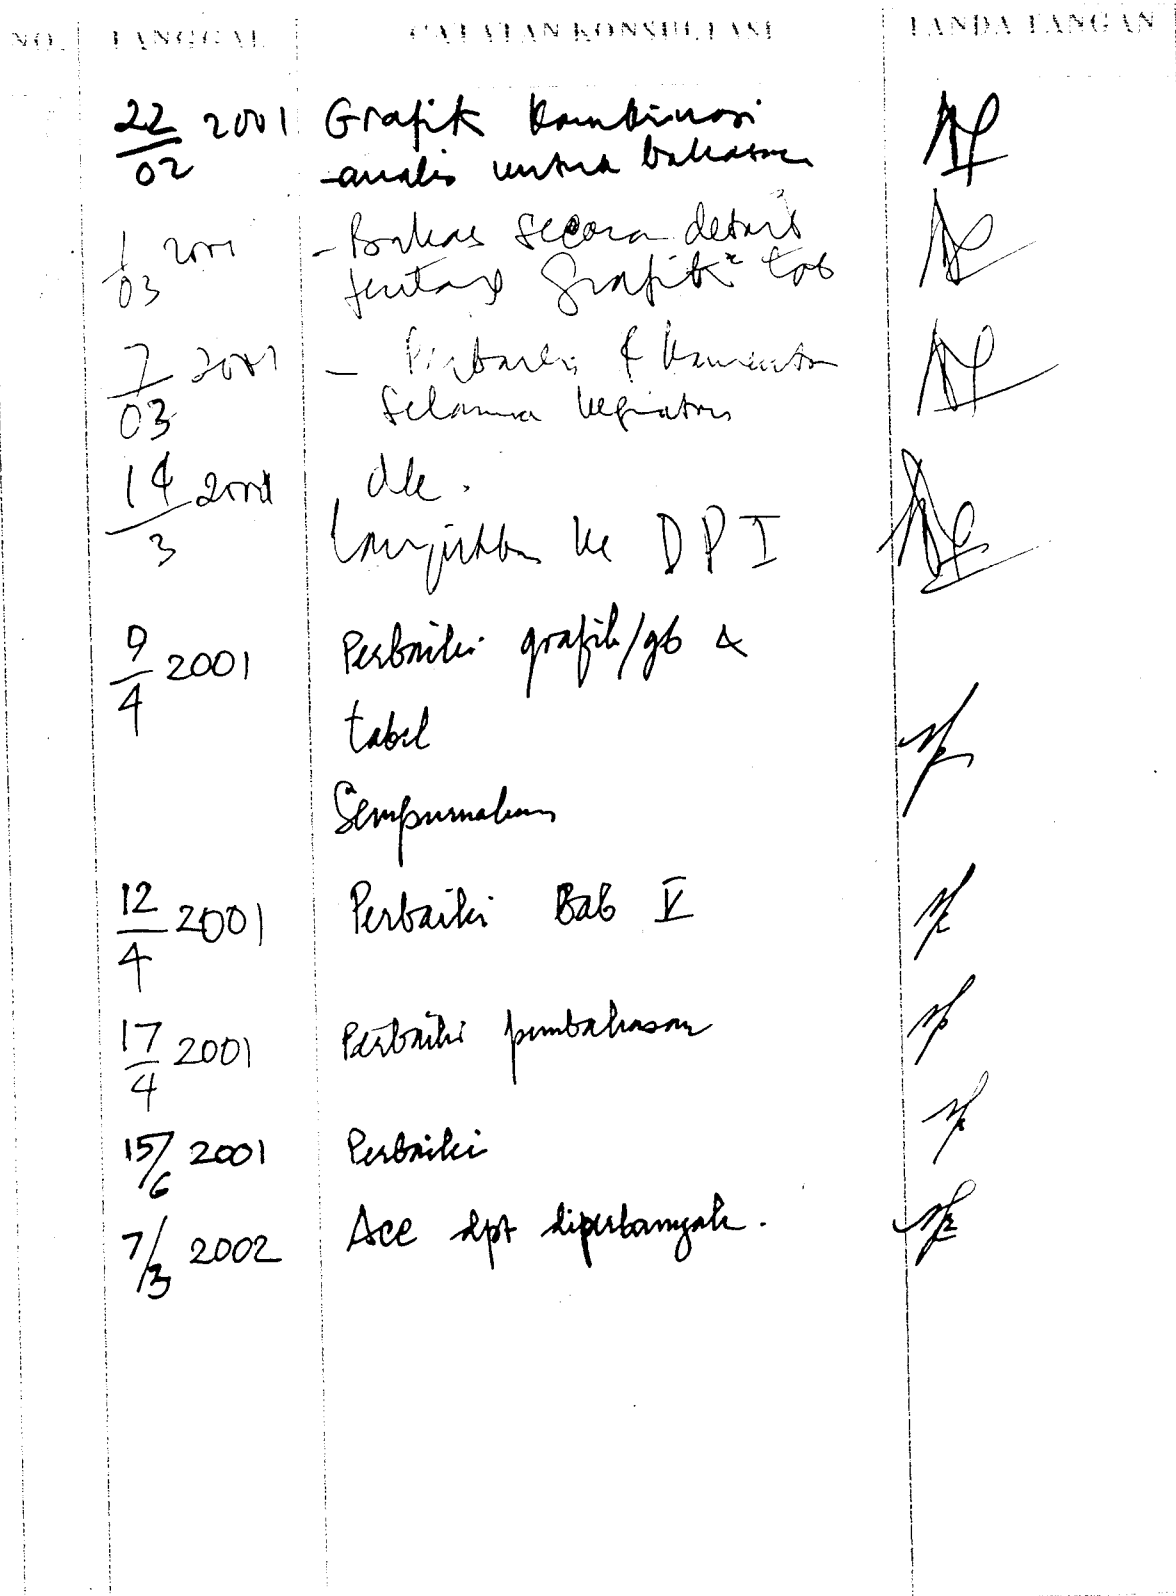 NO. TANGGAL CATATAN KONSULTASI TANDA TANGAN
22/02 2001 Grafik kombinasi
analis untuk bahasan
1/03 2001 - Bahas secara detail
tentang Grafik² tab
7/03 2001 -
selama kegiatan
14/3 2001
Lanjutkan ke DPI
9/4 2001 Perbaiki grafik/gb &
tabel
Sempurnakan
12/4 2001 Perbaiki Bab V
17/4 2001 Perbaiki pembahasan
15/6 2001 Perbaiki
7/3 2002 Acc dpt diperbanyak.